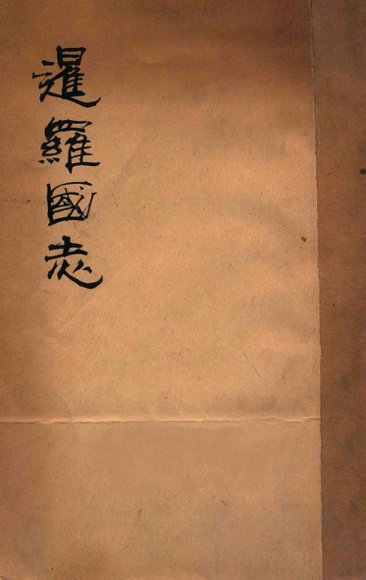 暹羅國志